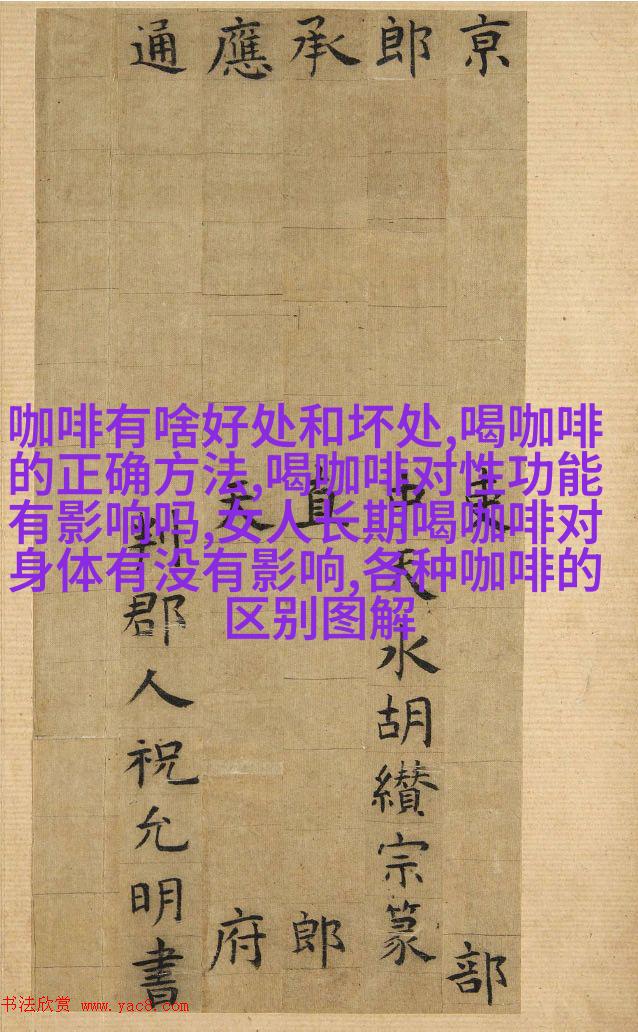 咖啡有啥好处和坏处,喝咖啡
的正确方法,喝咖啡对性功能
有影响吗,女人长期喝咖啡对
身体有没有影响,各种咖啡的
区别图解
京吏部
郎中天水胡纘宗篆
承直郎
應天府
通判郡人祝允明書
书法欣赏 www.yac8.com